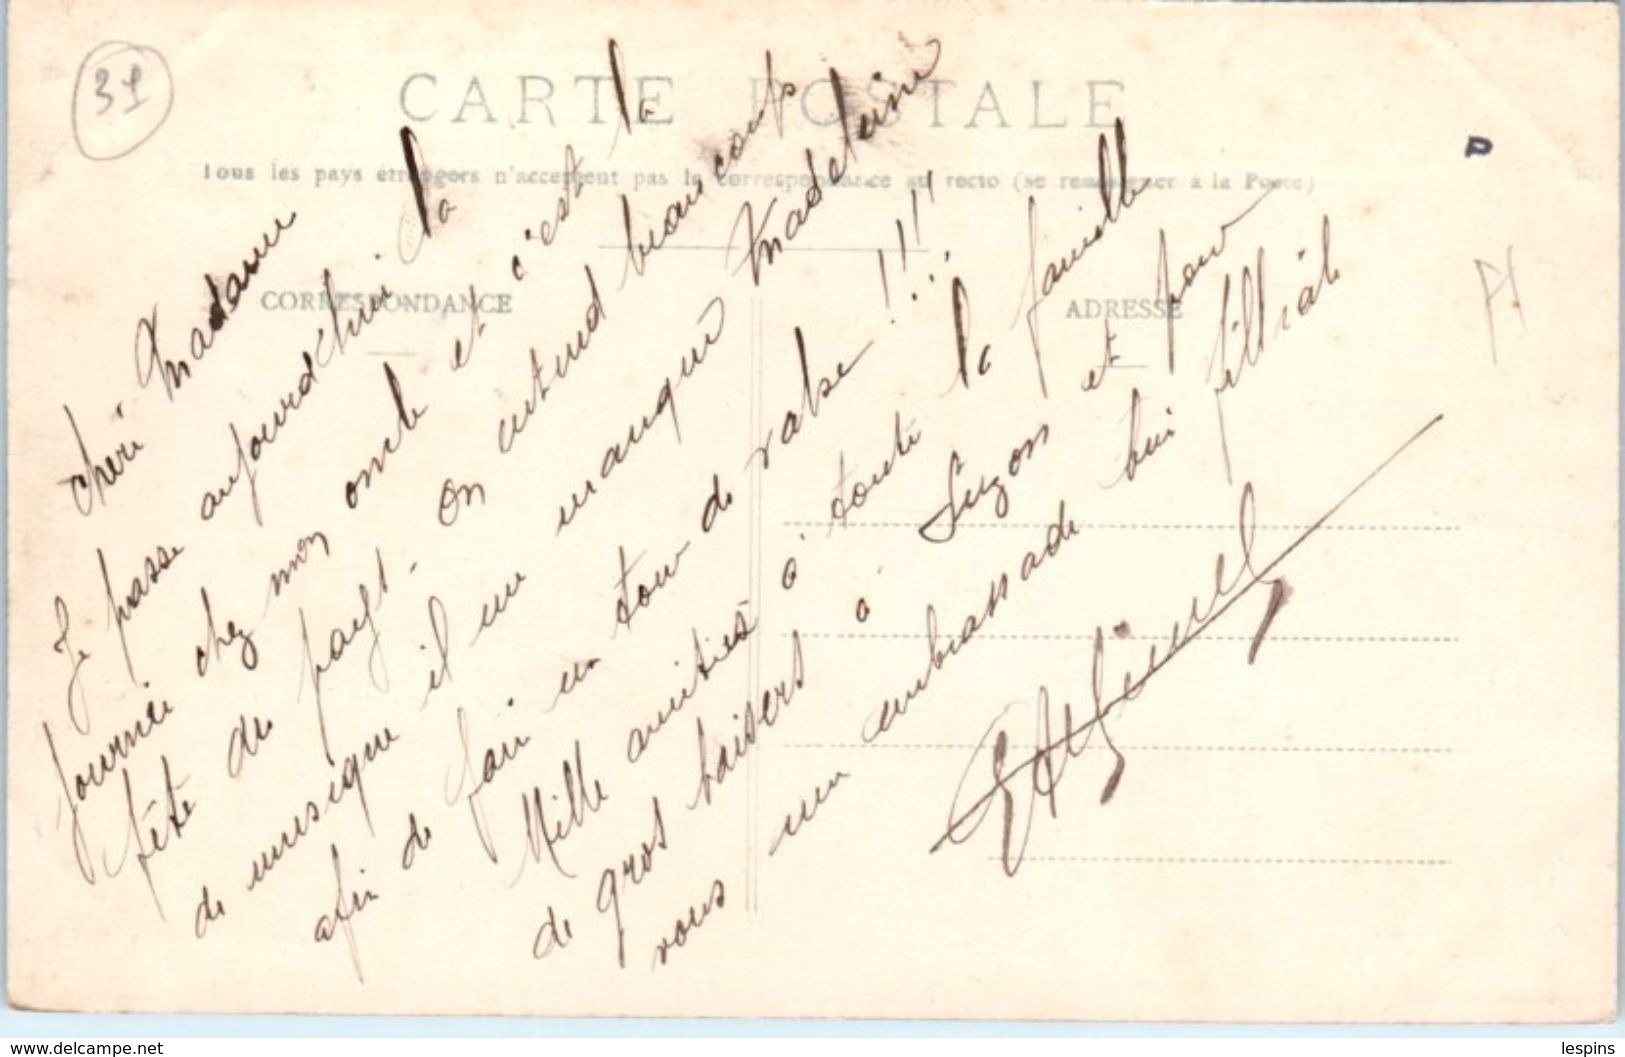 31
CARTE POSTALE
Tous les pays étrangers n'acceptent pas la correspondance au recto (se renseigner à la Poste)
CORRESPONDANCE
ADRESSE
D
Pf
chère Madame
Je passe aujourdehui la
journée chez mon oncle et c'est la
fête du pays. On entend beaucoups
de musique il me manque Madeleine
afin de faire un tour de valse !!!
Mille amitiés à toute la famille
de gros baisers à Suzon et pour
vous une embrassade bien filliale
www.delcampe.net
lespins